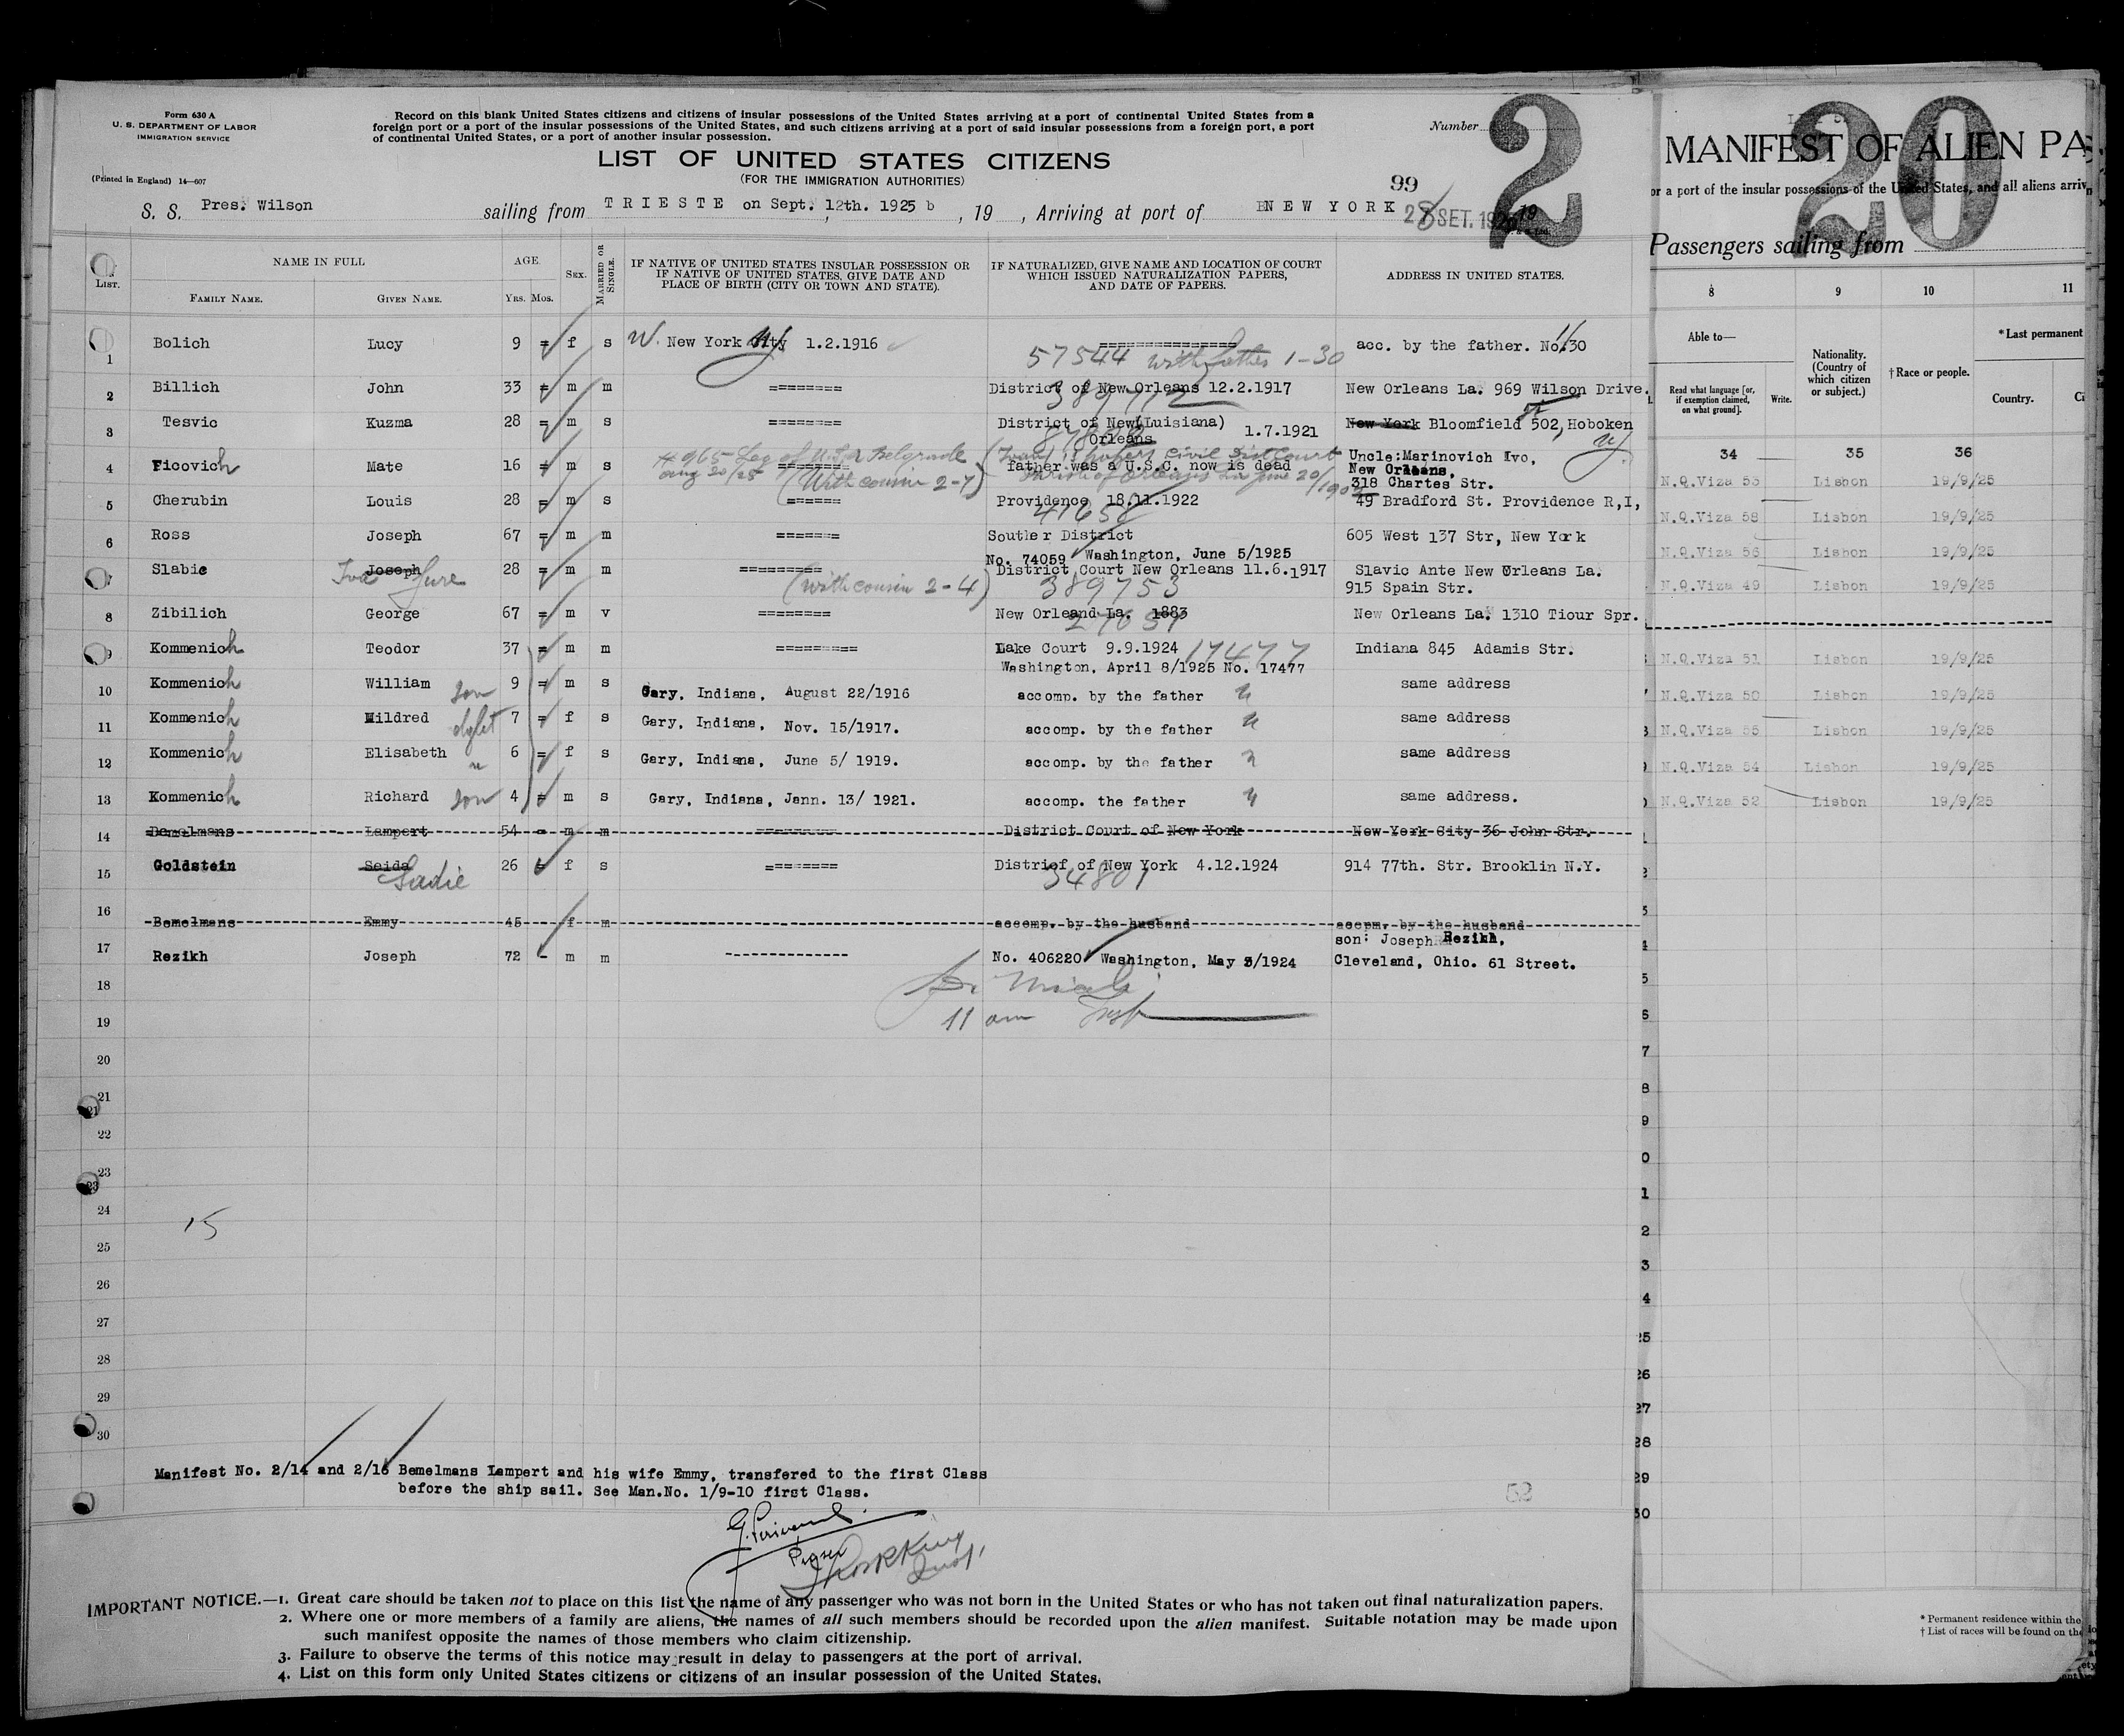 Form 630 A
U. S. DEPARTMENT OF LABOR
IMMIGRATION SERVICE
(Printed in England) 14—607
Record on this blank United States citizens and citizens of insular possessions of the United States arriving at a port of continental United States from a
foreign port or a port of the insular possessions of the United States, and such citizens arriving at a port of said insular possessions from a foreign port, a port
of continental United States, or a port of another insular possession.
Number
2
LIST OF UNITED STATES CITIZENS
(FOR THE IMMIGRATION AUTHORITIES)
99
S. S. Pres. Wilson sailing from TRIESTE on Sept. 12th. 1925 , 19 , Arriving at port of NEW YORK 28 SET. 1925 19
LIST. NAME IN FULL AGE. SEX. MARRIED OR SINGLE. IF NATIVE OF UNITED STATES INSULAR POSSESSION OR IF NATIVE OF UNITED STATES, GIVE DATE AND PLACE OF BIRTH (CITY OR TOWN AND STATE). IF NATURALIZED, GIVE NAME AND LOCATION OF COURT WHICH ISSUED NATURALIZATION PAPERS, AND DATE OF PAPERS. ADDRESS IN UNITED STATES.
FAMILY NAME. GIVEN NAME. Yrs. Mos.
1 Bolich Lucy 9 = f s New York City NY 1.2.1916 ================ acc. by the father. No. 1/30
57544 with father 1-30
2 Billich John 33 = m m ======= District of New Orleans 12.2.1917 New Orleans La. 969 Wilson Drive.
3 Tesvic Kuzma 28 = m s ======= District of New (Luisiana) Orleans 1.7.1921 New York Bloomfield 502, Hoboken NJ
4 Ficovich Mate 16 = m s ======= father was a U.S.C. now is dead Uncle: Marinovich Ivo,
New Orleans,
318 Chartes Str.
Aug 20/25 (With cousin 2-7)
5 Cherubin Louis 28 = m s ====== Providence 18.11.1922 49 Bradford St. Providence R,I,
41658
6 Ross Joseph 67 = m m ======= Souther District 605 West 137 Str, New York
No. 74059 Washington, June 5/1925
7 Slabic Joseph Iva Jure 28 = m m ========= District Court New Orleans 11.6.1917 Slavic Ante New Orleans La.
(with cousin 2-4) 389753 915 Spain Str.
8 Zibilich George 67 = m v ======== New Orleand La. 1883 New Orleans La. 1310 Tiour Spr.
9 Kommenich Teodor 37 = m m ========= Lake Court 9.9.1924 17477 Indiana 845 Adamis Str.
Washington, April 8/1925 No. 17477
10 Kommenich William son 9 = m s Gary, Indiana, August 22/1916 accomp. by the father same address
11 Kommenich Mildred 7 = f s Gary, Indiana, Nov. 15/1917. accomp. by the father same address
12 Kommenich Elisabeth 6 = f s Gary, Indiana, June 5/ 1919. accomp. by the father same address
13 Kommenich Richard son 4 = m s Gary, Indiana, Jann. 13/ 1921. accomp. the father same address.
14 Bemelmans Lampert 54 = m m ======== District Court of New York New York City 36 John Str.
15 Goldstein Seida Sadie 26 f s ======= District of New York 4.12.1924 914 77th. Str. Brooklin N.Y.
34801
16 Bemelmans Emmy 45 f m accomp. by the husband accpm. by the husband
17 Rezikh Joseph 72 - m m -------------- No. 406220 Washington, May 5/1924 son: Joseph Rezikh,
Cleveland, Ohio. 61 Street.
18
19
11 am
20
21
22
23
24
15
25
26
27
28
29
30
Manifest No. 2/14 and 2/16 Bemelmans Lampert and his wife Emmy, transfered to the first Class
before the ship sail. See Man.No. 1/9-10 first Class.
53
Purser
IMPORTANT NOTICE.—1. Great care should be taken not to place on this list the name of any passenger who was not born in the United States or who has not taken out final naturalization papers.
2. Where one or more members of a family are aliens, the names of all such members should be recorded upon the alien manifest. Suitable notation may be made upon
such manifest opposite the names of those members who claim citizenship.
3. Failure to observe the terms of this notice may result in delay to passengers at the port of arrival.
4. List on this form only United States citizens or citizens of an insular possession of the United States.
20
MANIFEST OF ALIEN PA
or a port of the insular possessions of the United States, and all aliens arriv
Passengers sailing from
8 9 10 11
Able to— Nationality. (Country of which citizen or subject.) †Race or people. *Last permanent
Read what language [or, if exemption claimed, on what ground]. Write. Country.
34 35 36
N.Q.Viza 53 Lisbon 19/9/25
N.Q.Viza 58 Lisbon 19/9/25
N.Q.Viza 56 Lisbon 19/9/25
N.Q.Viza 49 Lisbon 19/9/25
N.Q.Viza 51 Lisbon 19/9/25
N.Q.Viza 50 Lisbon 19/9/25
N.Q.Viza 55 Lisbon 19/9/25
N.Q.Viza 54 Lisbon 19/9/25
N.Q.Viza 52 Lisbon 19/9/25
* Permanent residence within the
† List of races will be found on the